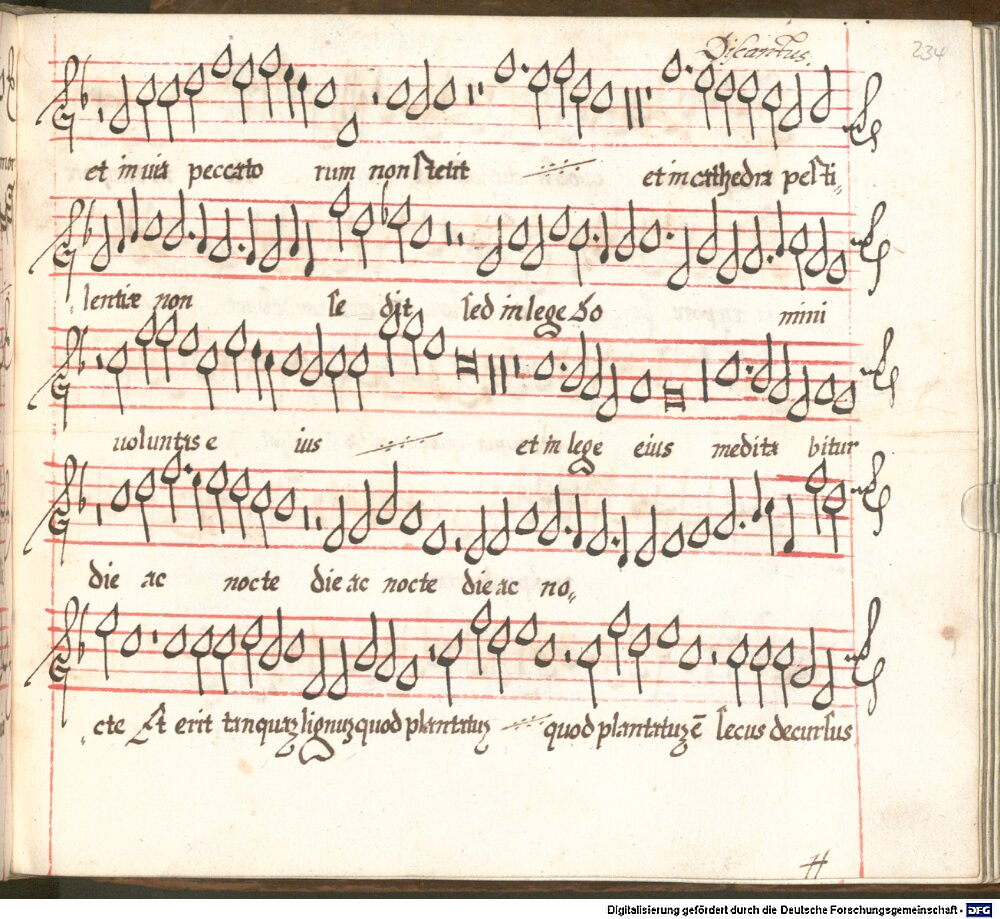 Discantus.
234
et in uia peccato rum non stetit et in cathedra pesti„
lentiæ non se dit sed in lege Do mini
uoluntas e ius et in lege eius medita bitur
die ac nocte die ac nocte die ac no„
„cte Et erit tanquaʒ lignuʒ quod plantatuʒ quod plantatuʒ ē secus decursus
Digitalisierung gefördert durch die Deutsche Forschungsgemeinschaft - DFG